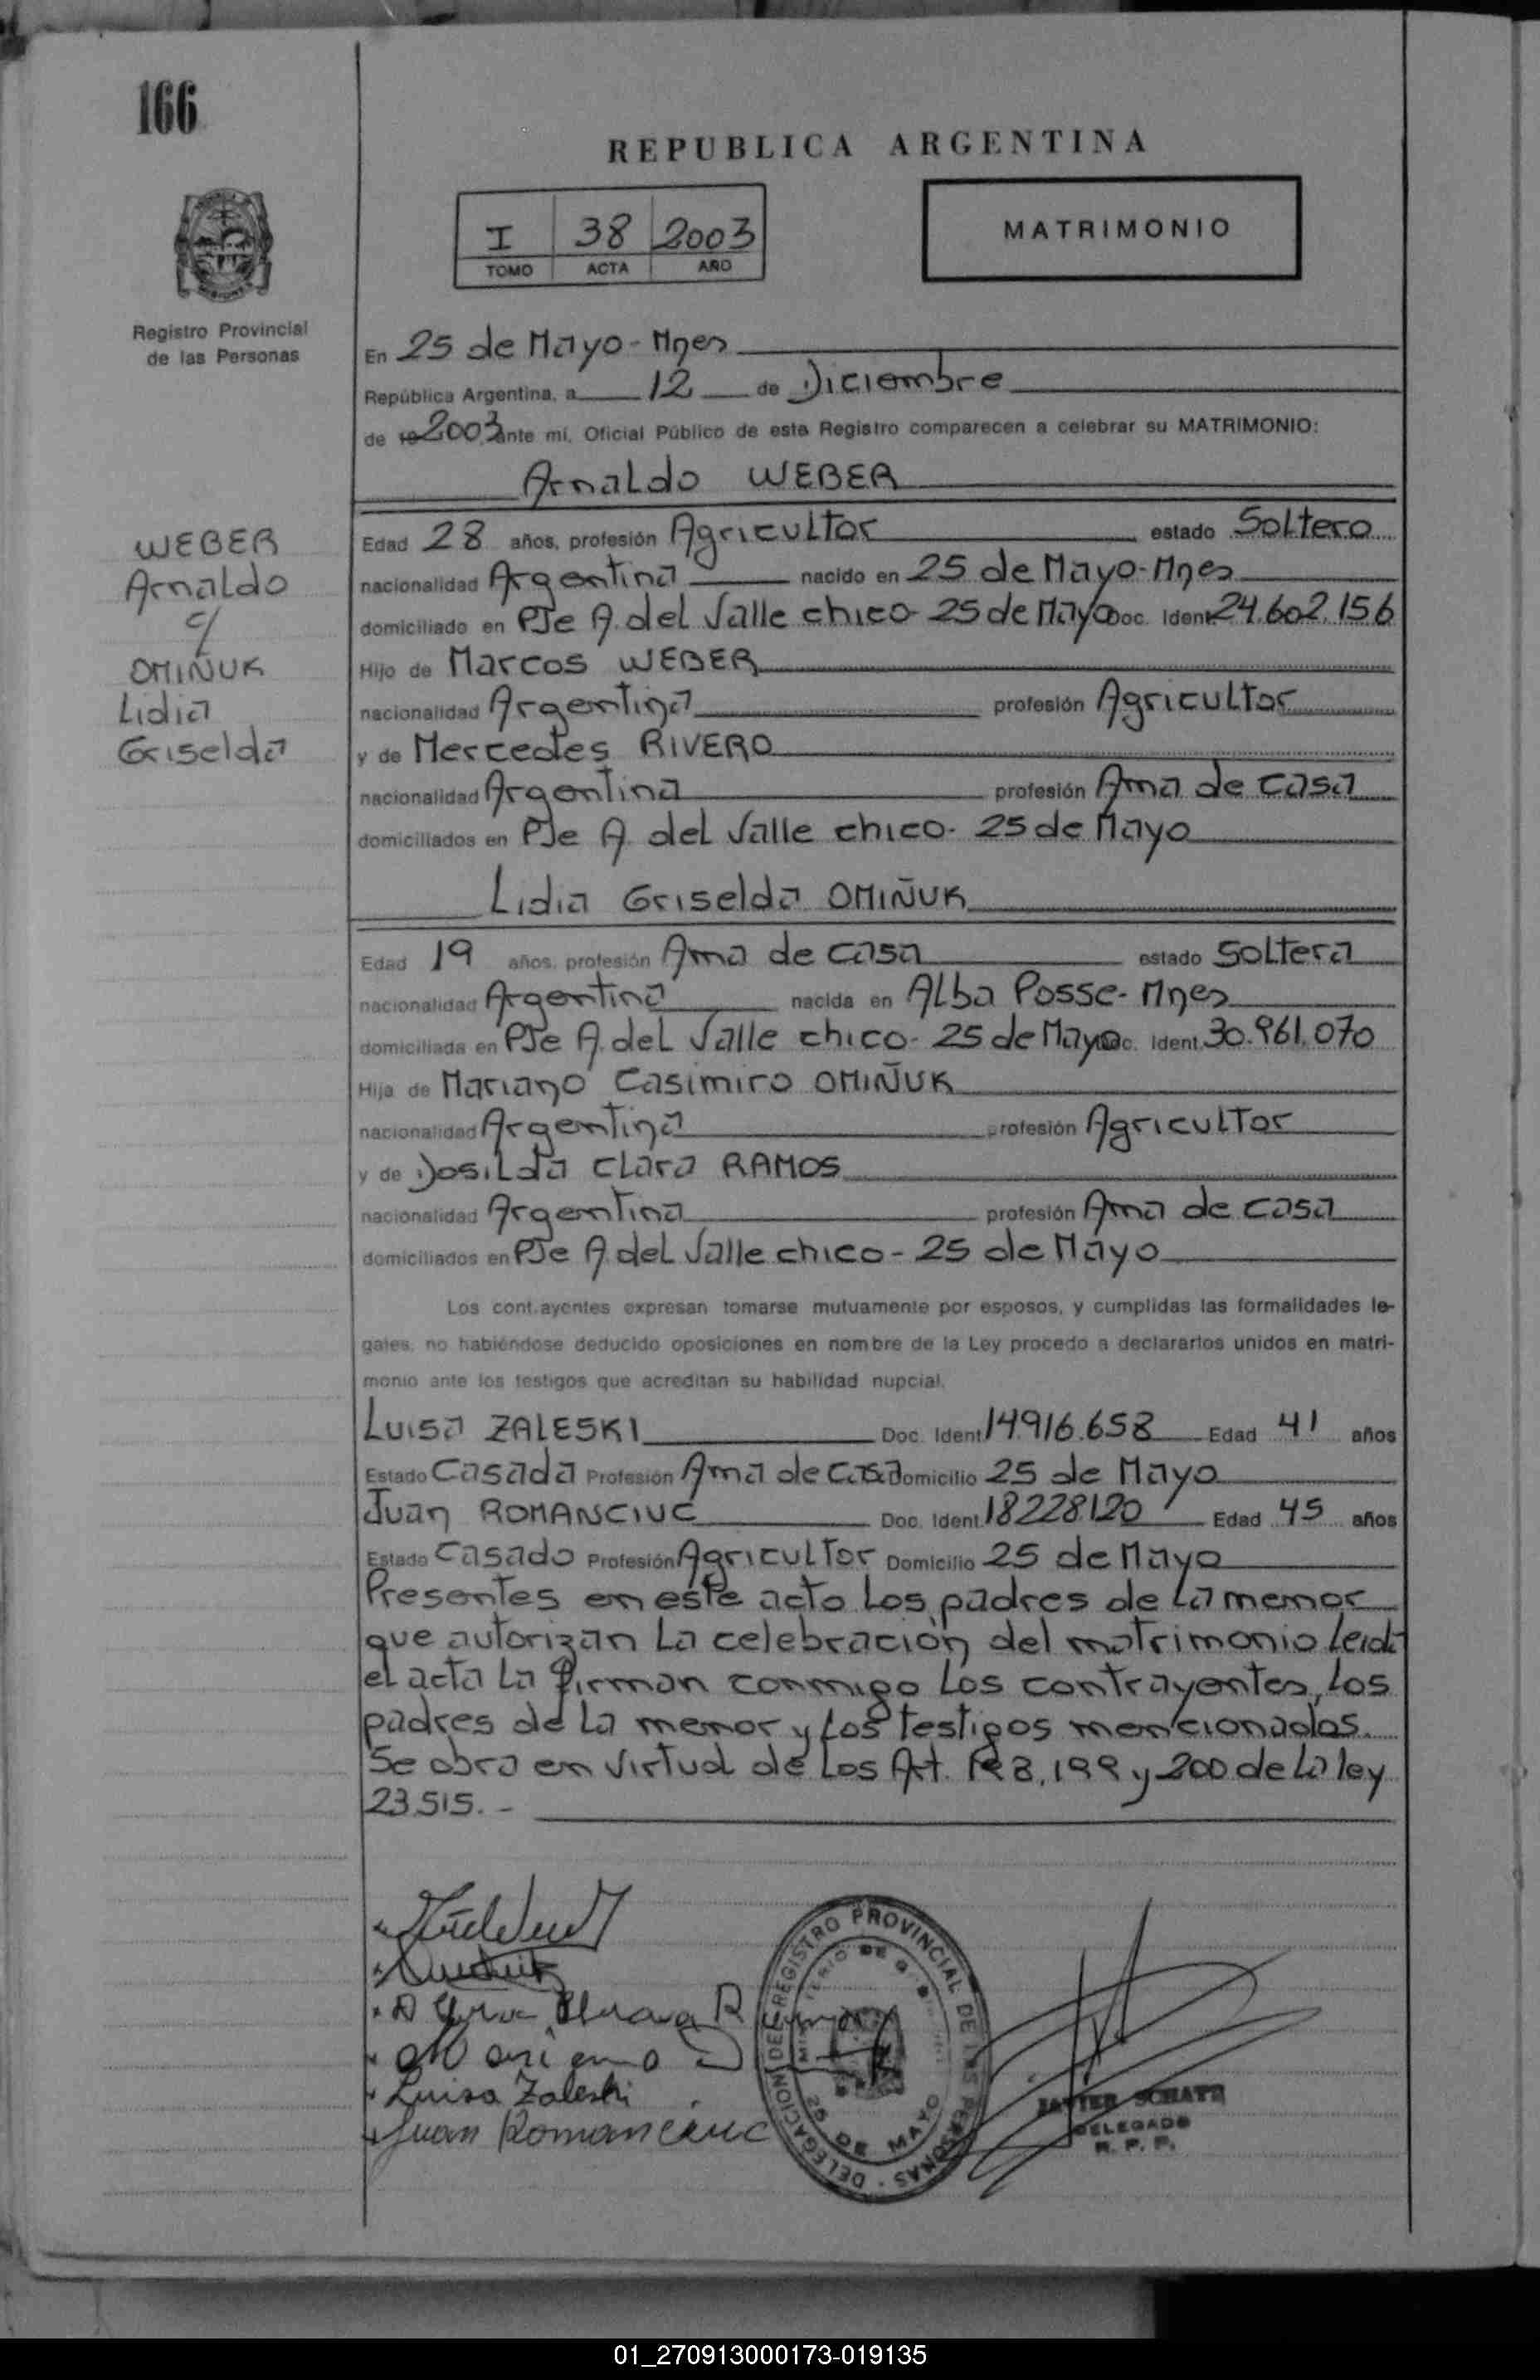 166
REPUBLICA ARGENTINA
I 38 2003
TOMO ACTA AÑO
MATRIMONIO
Registro Provincial
de las Personas
En 25 de Mayo - Mnes
República Argentina, a 12 de Diciembre
de 19 2003 ante mí, Oficial Público de este Registro comparecen a celebrar su MATRIMONIO:
Arnaldo WEBER
WEBER
Arnaldo
c/
OMIÑUK
Lidia
Griselda
Edad 28 años, profesión Agricultor estado Soltero
nacionalidad Argentina nacido en 25 de Mayo - Mnes
domiciliado en PJe A. del Valle chico - 25 de Mayo Doc. Ident. 24.602.156
Hijo de Marcos WEBER
nacionalidad Argentina profesión Agricultor
y de Mercedes RIVERO
nacionalidad Argentina profesión Ama de casa
domiciliados en PJe A. del Valle chico - 25 de Mayo
Lidia Griselda OMIÑUK
Edad 19 años, profesión Ama de casa estado Soltera
nacionalidad Argentina nacida en Alba Posse - Mnes
domiciliada en PJe A. del Valle chico - 25 de Mayo Doc. Ident. 30.961.070
Hija de Mariano Casimiro OMIÑUK
nacionalidad Argentina profesión Agricultor
y de Dosilda Clara RAMOS
nacionalidad Argentina profesión Ama de casa
domiciliados en PJe A. del Valle chico - 25 de Mayo
Los contrayentes expresan tomarse mutuamente por esposos, y cumplidas las formalidades le-
gales, no habiéndose deducido oposiciones en nombre de la Ley procedo a declararlos unidos en matri-
monio ante los testigos que acreditan su habilidad nupcial.
Luisa ZALESKI Doc. Ident. 14.916.658 Edad 41 años
Estado Casada Profesión Ama de Casa Domicilio 25 de Mayo
Juan ROMANCIUC Doc. Ident. 18228.120 Edad 45 años
Estado Casado Profesión Agricultor Domicilio 25 de Mayo
Presentes en este acto los padres de la menor
que autorizan la celebración del matrimonio leida
el acta la firman conmigo los contrayentes, los
padres de la menor y los testigos mencionados.
Se obra en virtud de los Art. 198, 199 y 200 de la ley
23.515.-
Mariano
Luisa Zaleski
Juan Romanciuc
DELEGACION DEL REGISTRO PROVINCIAL DE LAS PERSONAS
MINISTERIO DE GOBIERNO
25 DE MAYO
JAVIER SCHATZ
DELEGADO
R. P. P.
01_270913000173-019135